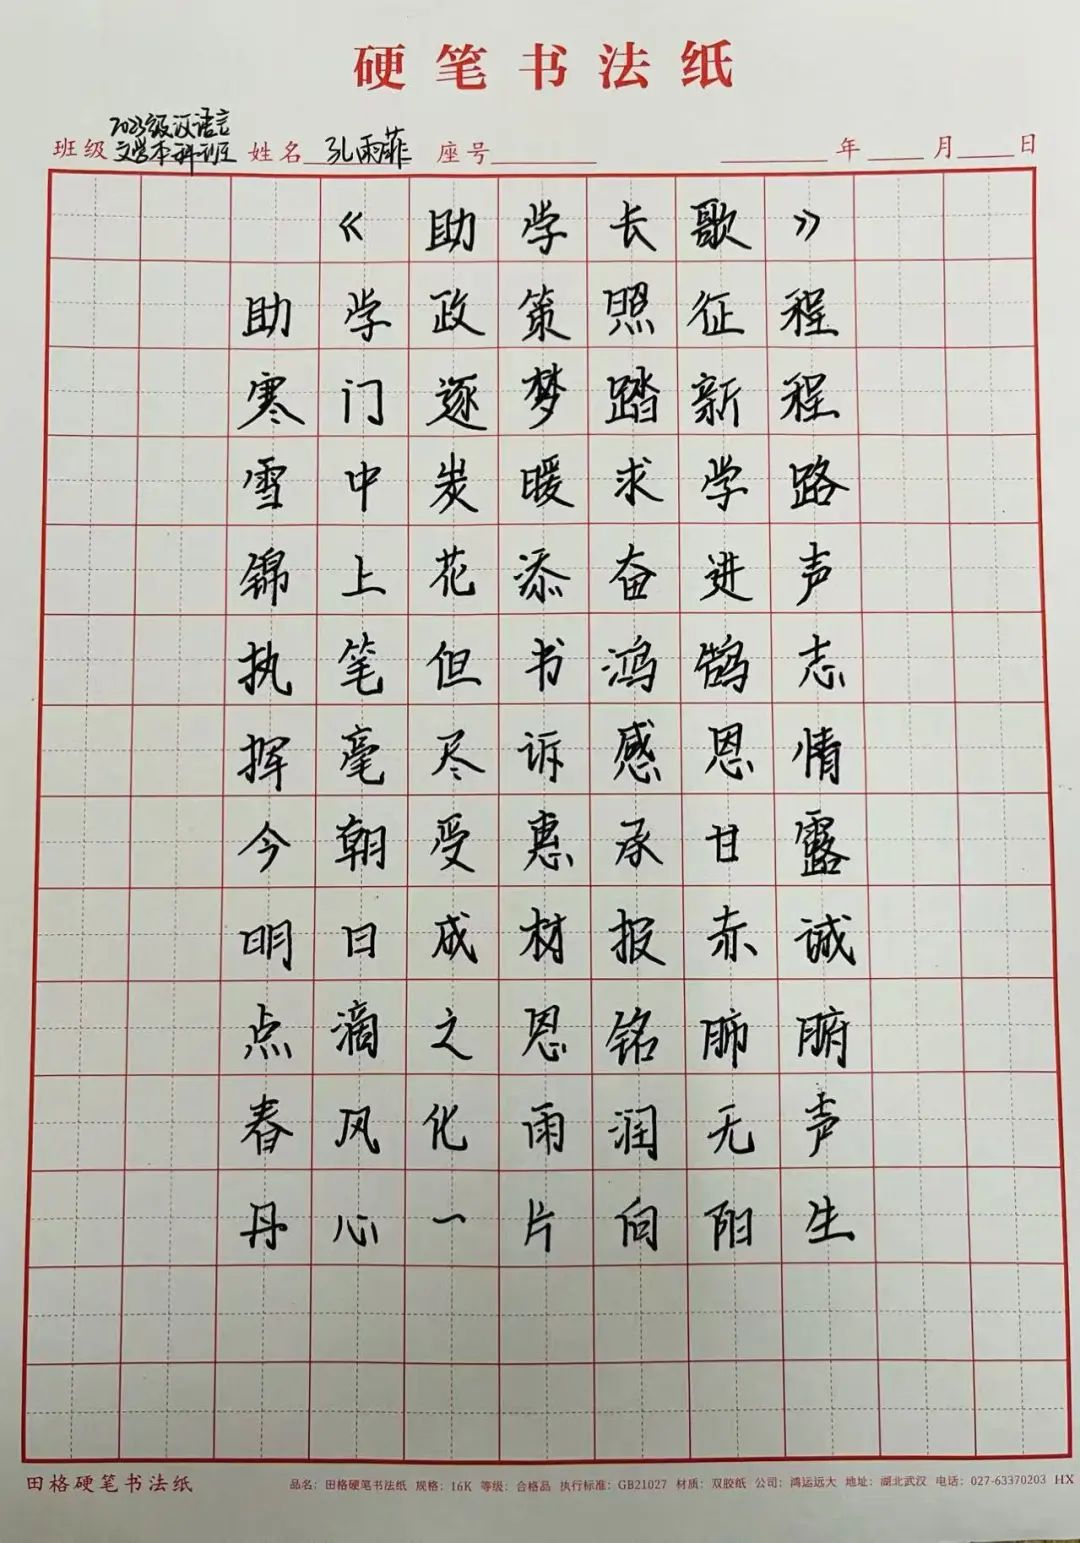 硬笔书法纸
班级 2023级汉语言文学本科班 姓名 孔雨菲 座号 年 月 日
《助学长歌》
助学政策照征程
寒门逐梦踏新程
雪中炭暖求学路
锦上花添奋进声
执笔但书鸿鹄志
挥毫尽诉感恩情
今朝受惠承甘露
明日成材报赤诚
点滴之恩铭肺腑
春风化雨润无声
丹心一片向阳生
田格硬笔书法纸 品名:田格硬笔书法纸 规格:16K 等级:合格品 执行标准:GB21027 材质:双胶纸 公司:鸿运远大 地址:湖北武汉 电话:027-63370203 HX